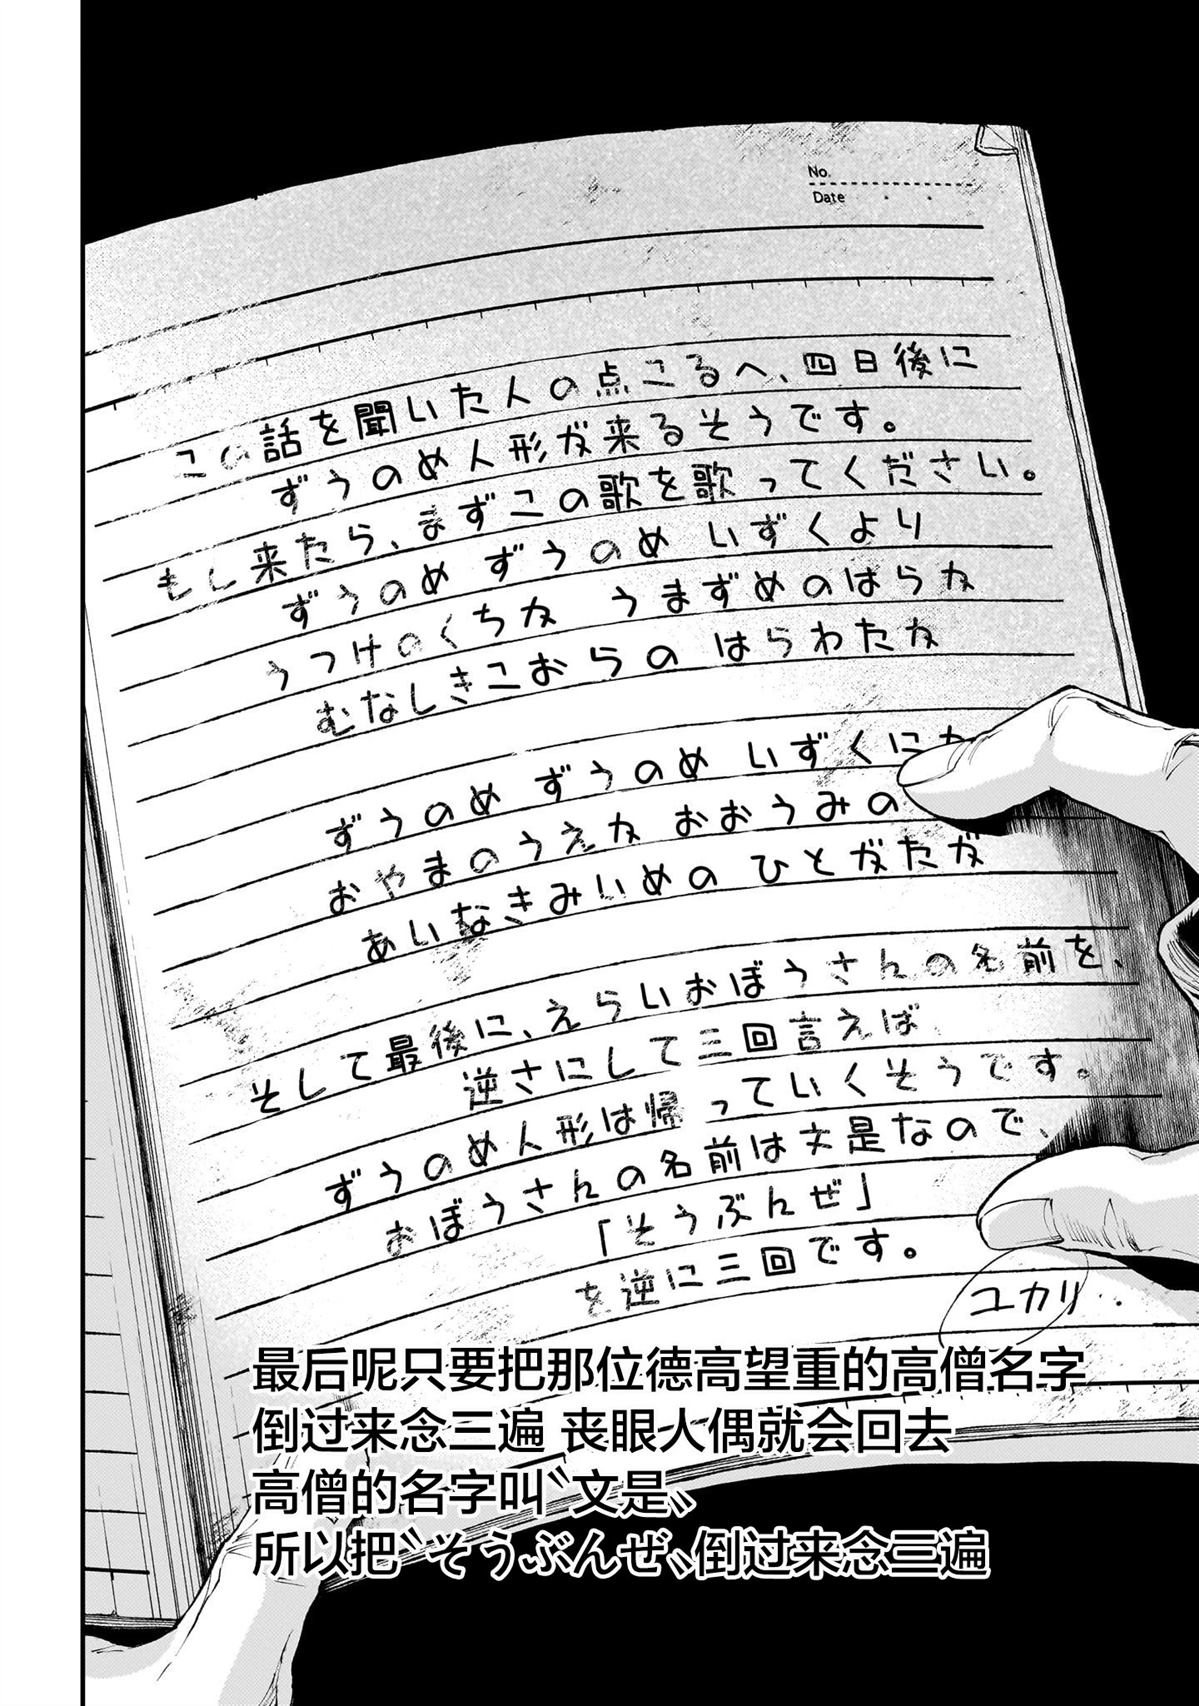 No.
Date
この話を聞いた人の点ころへ、四日後に
ずうのめ人形が来るそうです。
もし来たら、まずこの歌を歌ってください。
ずうのめ ずうのめ いずくより
うつけのくちか うまずめのはらか
むなしきこおらの はらわたか
ずうのめ ずうのめ いずくにか
おやまのうえか おおうみの
あいなきみいめの ひとがたが
そして最後に、えらいおぼうさんの名前を、
逆さにして三回言えば
ずうのめ人形は帰っていくそうです。
おぼうさんの名前は文是なので、
「そうぶんぜ」
を逆に三回です。
ユカリ
最后呢只要把那位德高望重的高僧名字
倒过来念三遍 丧眼人偶就会回去
高僧的名字叫〝文是〟
所以把〝そうぶんぜ〟倒过来念三遍